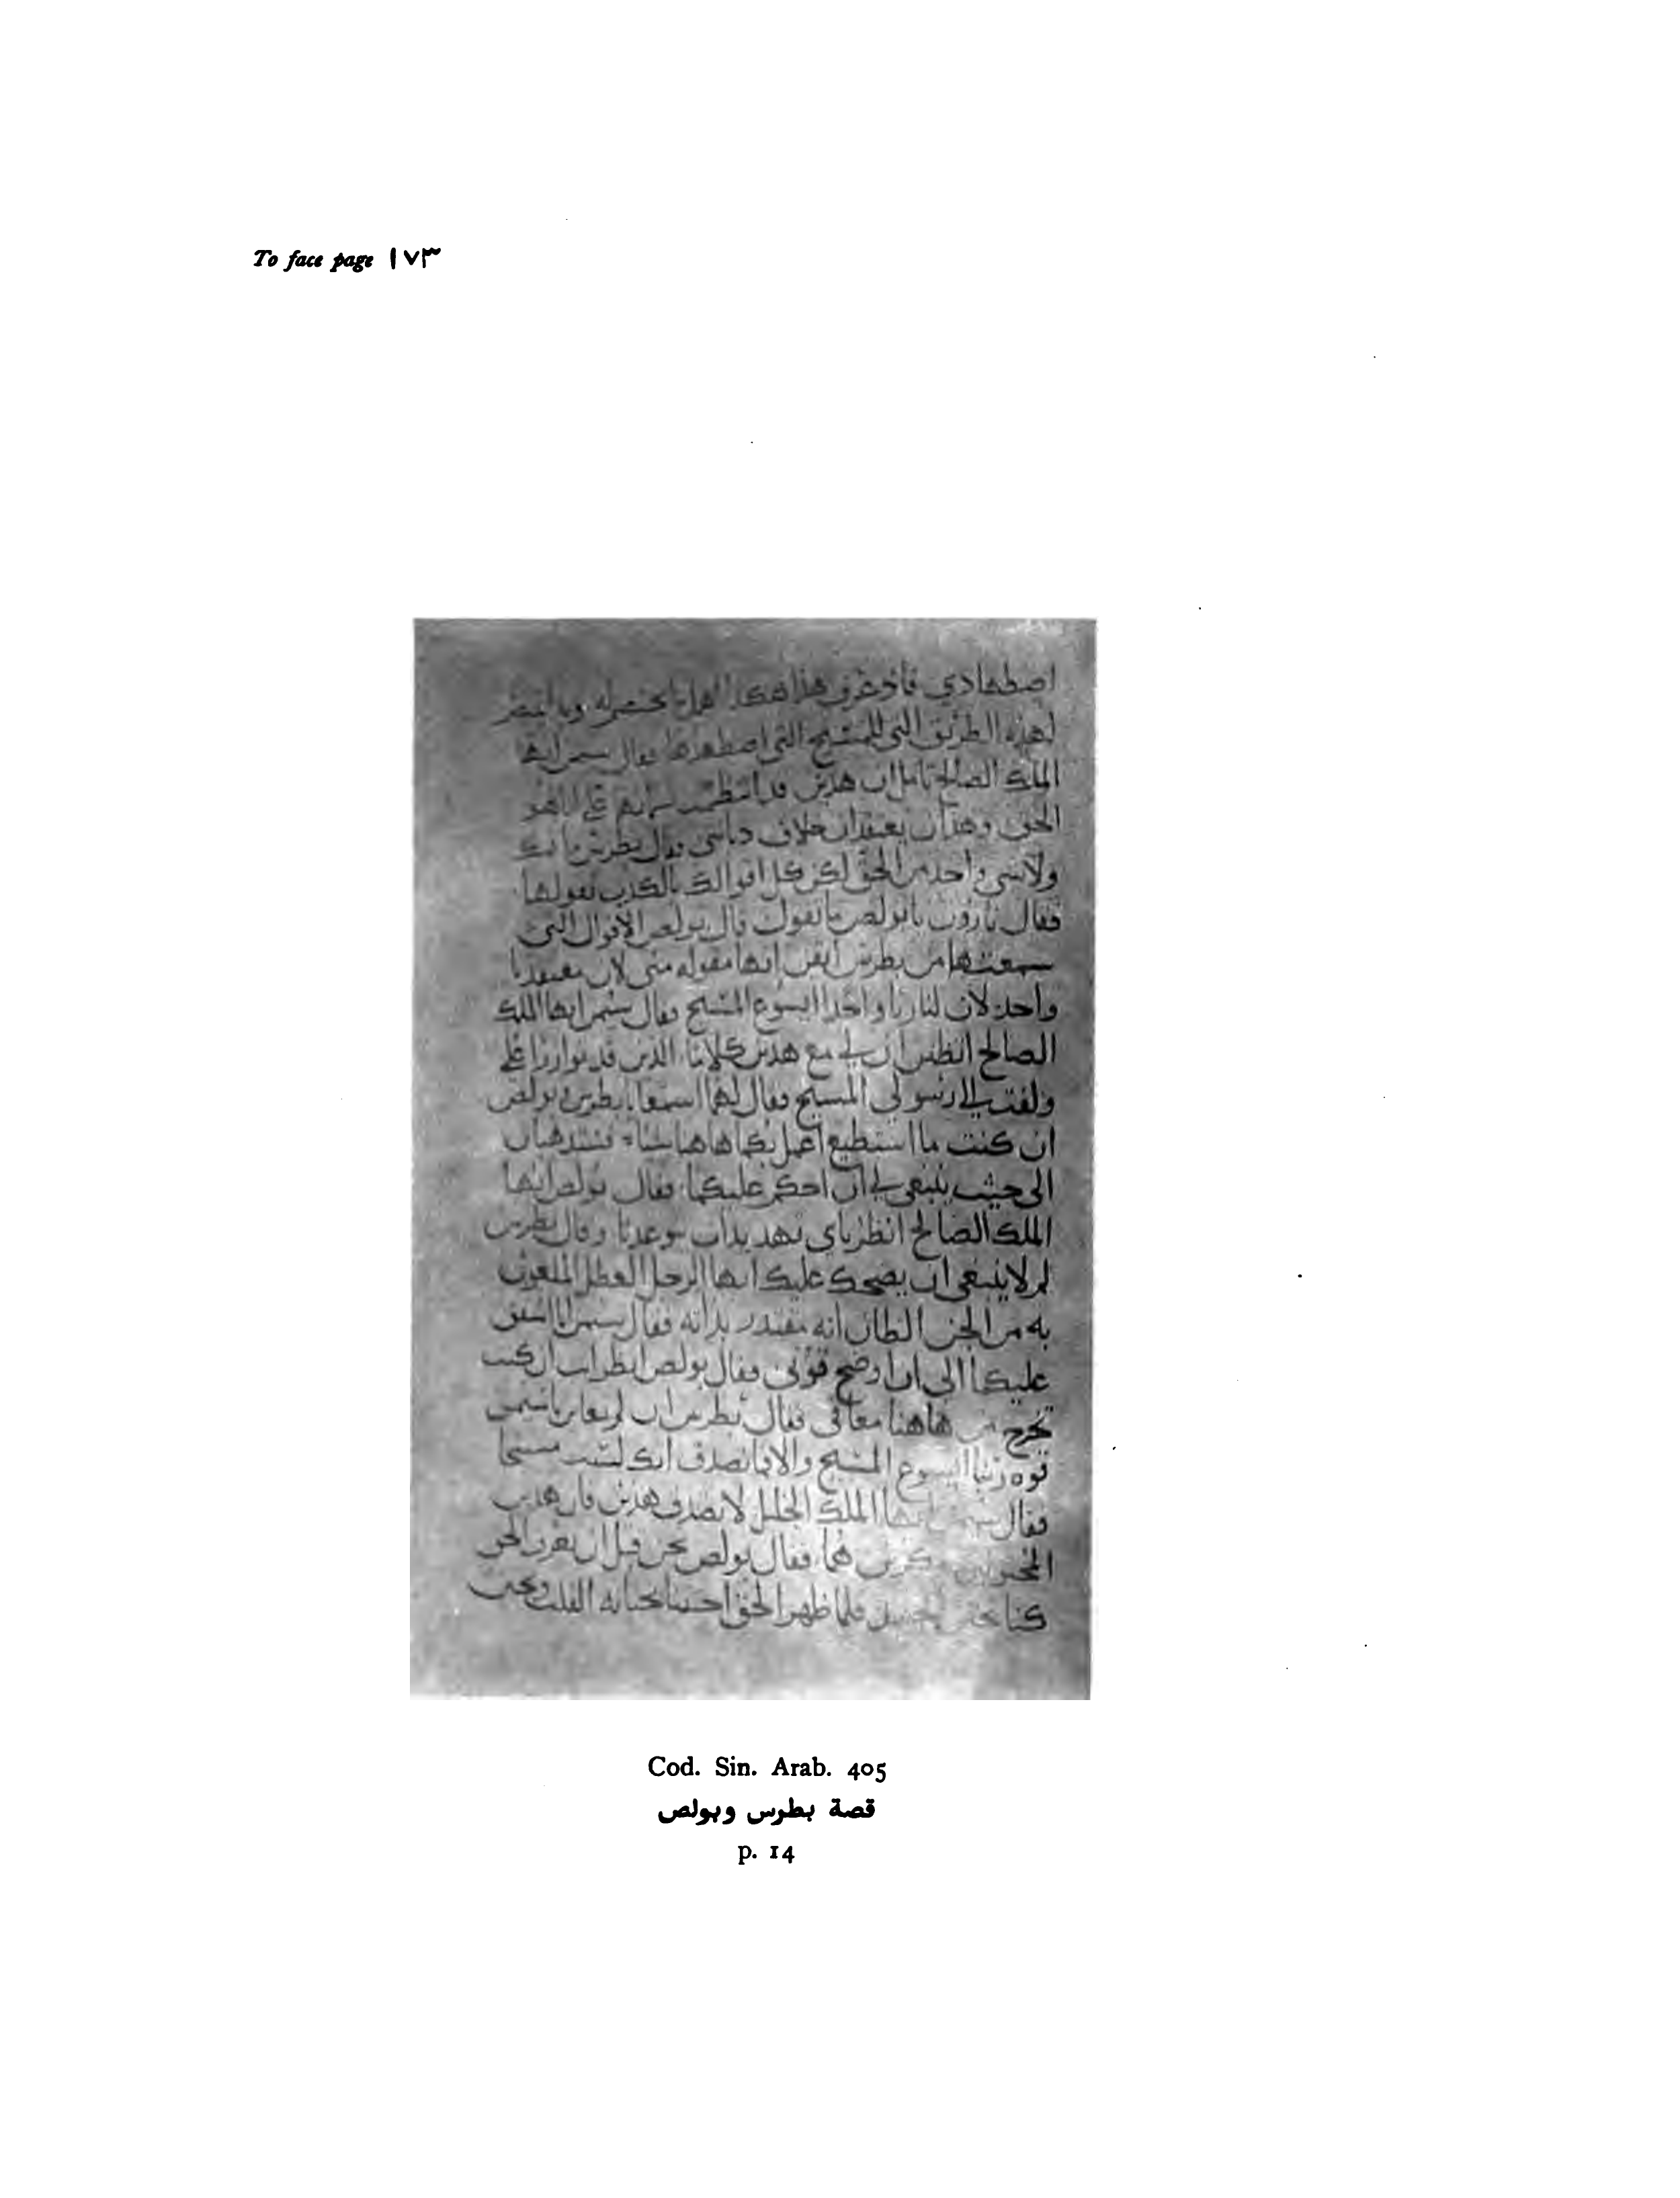 To face page ١٧٣
اصطهادي فاذ عرف هذا هكذا
لهذه الطريق التي للمسيح التي اصطهدها فقال سيمن ايها
الملك الصالح تامل ان هذين قد
الحق وهذان يعتقدان خلاف قال بطرس
ولا شي واحد من الحق لكن كل اقوالك بالكذب تقولها
فقال نارون يا بولص ما تقول قال بولص الاقوال التي
سمعتها من بطرس ايقن انها مقوله مني لان معتقدنا
واحد لان لنا ربا واحدا ايسوع المسيح فقال سيمن ايها الملك
الصالح اتظن ان لي مع هذين كلاما الذين قد توازرا علي
ولفت الى رسولي المسيح فقال لهما اسمعا يا بطرس وبولص
ان كنت ما استطيع اعمل بكما هاهنا شياء فستذهبان
الى حيث ينبغي لي ان احكم عليكما فقال بولص ايها
الملك الصالح انظر باي تهديدات توعدنا وقال بطرس
لم لا ينبغي ان يضحك عليك ايها الرجل العطل الملعوب
به من الجن الظان انه مقتدر بذاته فقال سيمن انا اشفق
عليكما الى ان اوضح قوتي فقال بولص انظر ان كنت
تخرج من هاهنا معافى فقال بطرس ان لم تعاين يا سيمن
قوه ربنا ايسوع المسيح والا فما تصدق انك لست مسيحا
فقال سيمن ايها الملك الجليل لا تصدق هذين فان هذين
هما فقال بولص نحن قبل ان نعرف الحق
كنا فلما ظهر الحق
Cod. Sin. Arab. 405
قصة بطرس وبولص
p. 14